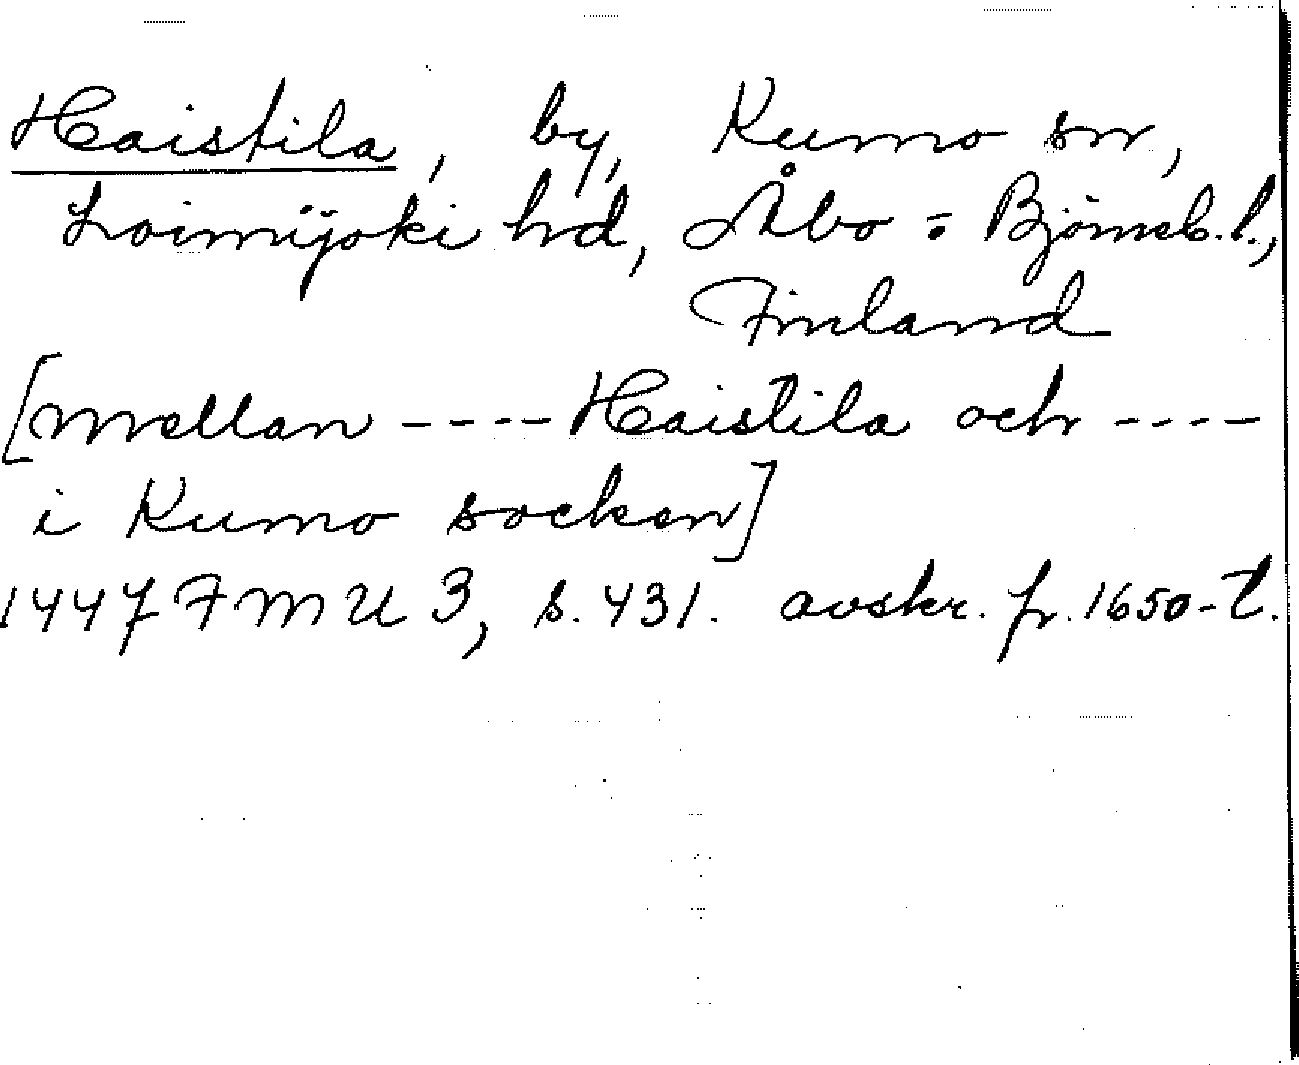 Haistila, by, Kumo sn,
Loimijoki hd, Åbo = Björneb. l.,
Finland
[mellan ---- Haistila och ----
i Kumo socken]
1447 FMU 3, s. 431. avskr. fr. 1650-t.